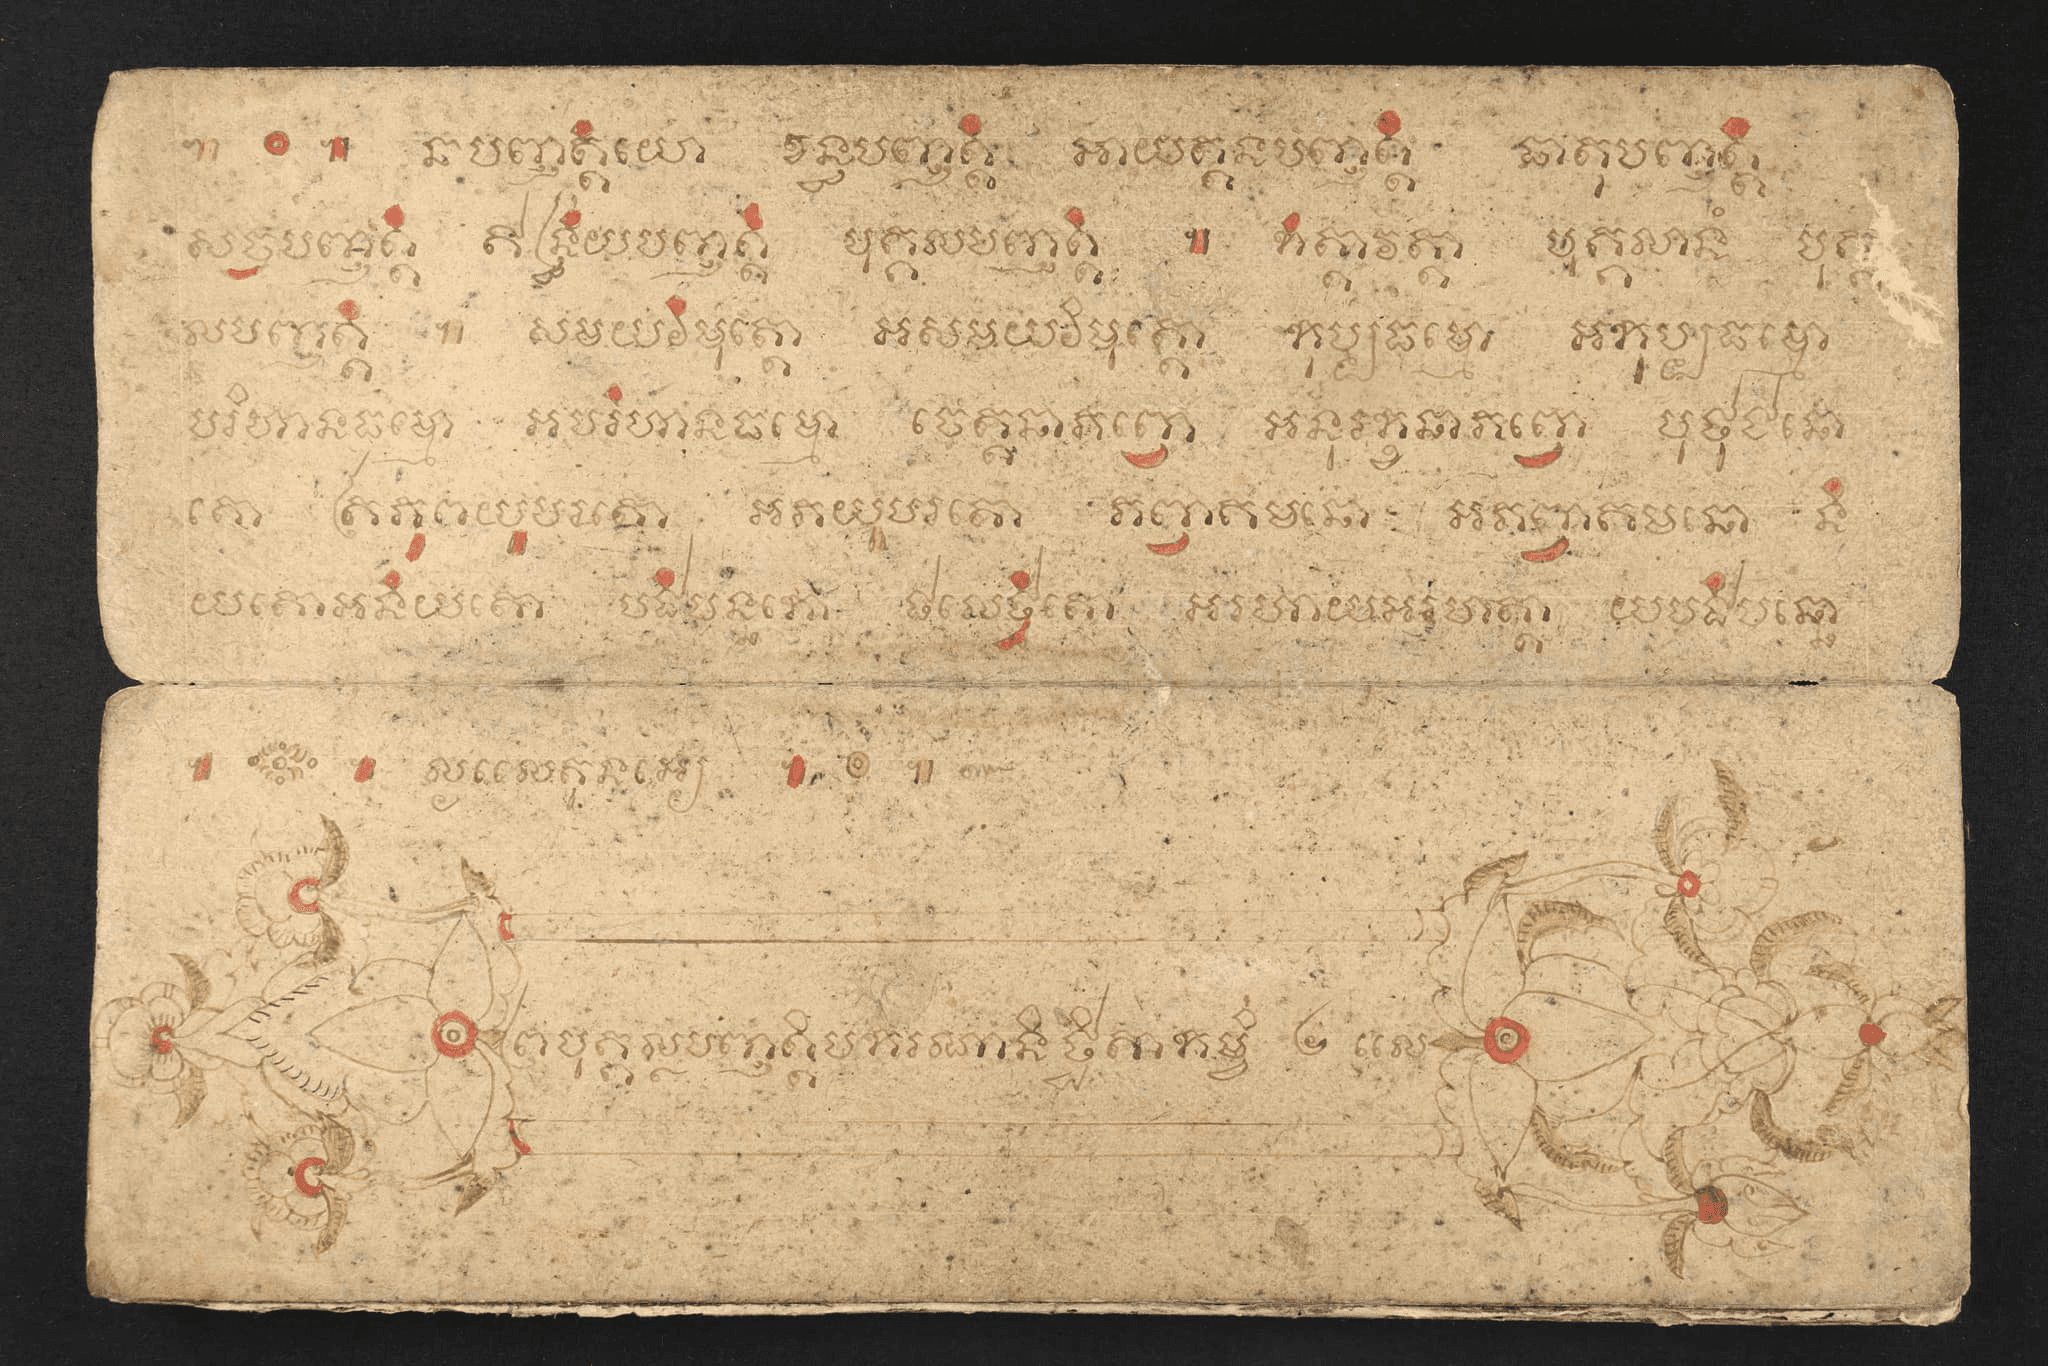 ៗ ๏ ៗ ឆបញ្ញត្តិយោ ខន្ធបញ្ញត្តិ អាយត្តនបញ្ញត្តិ ធាតុបញ្ញត្តិ
សច្ចបញ្ញត្តិ ឥន្ទ្រិយបញ្ញត្តិ បុគ្គលបញ្ញត្តិ ៗ កិត្តាវត្តា បុគ្គលានំ បុគ្គ
លបញ្ញត្តិ ៗ សមយវិមុត្តោ អសមយវិមុត្តោ កុប្បធម្មោ អកុប្បធម្មោ
បរិហានធម្មោ អបរិហានធម្មោ ចេត្តនាភព្វោ អនុរក្ខនាភព្វោ បុថុជ្ជនោ
គោ ត្រភូភយូបរតោ អភយូបរតោ ភព្វាគមនោ អភព្វាគមនោ និ
យតោអនិយតោ បដិបន្នកោ ផលេឋិតោ អរហាយអរហត្តា យបដិបន្នោ
បុគ្គល្លបញ្ញត្តិបករណានិដ្ឋិតា